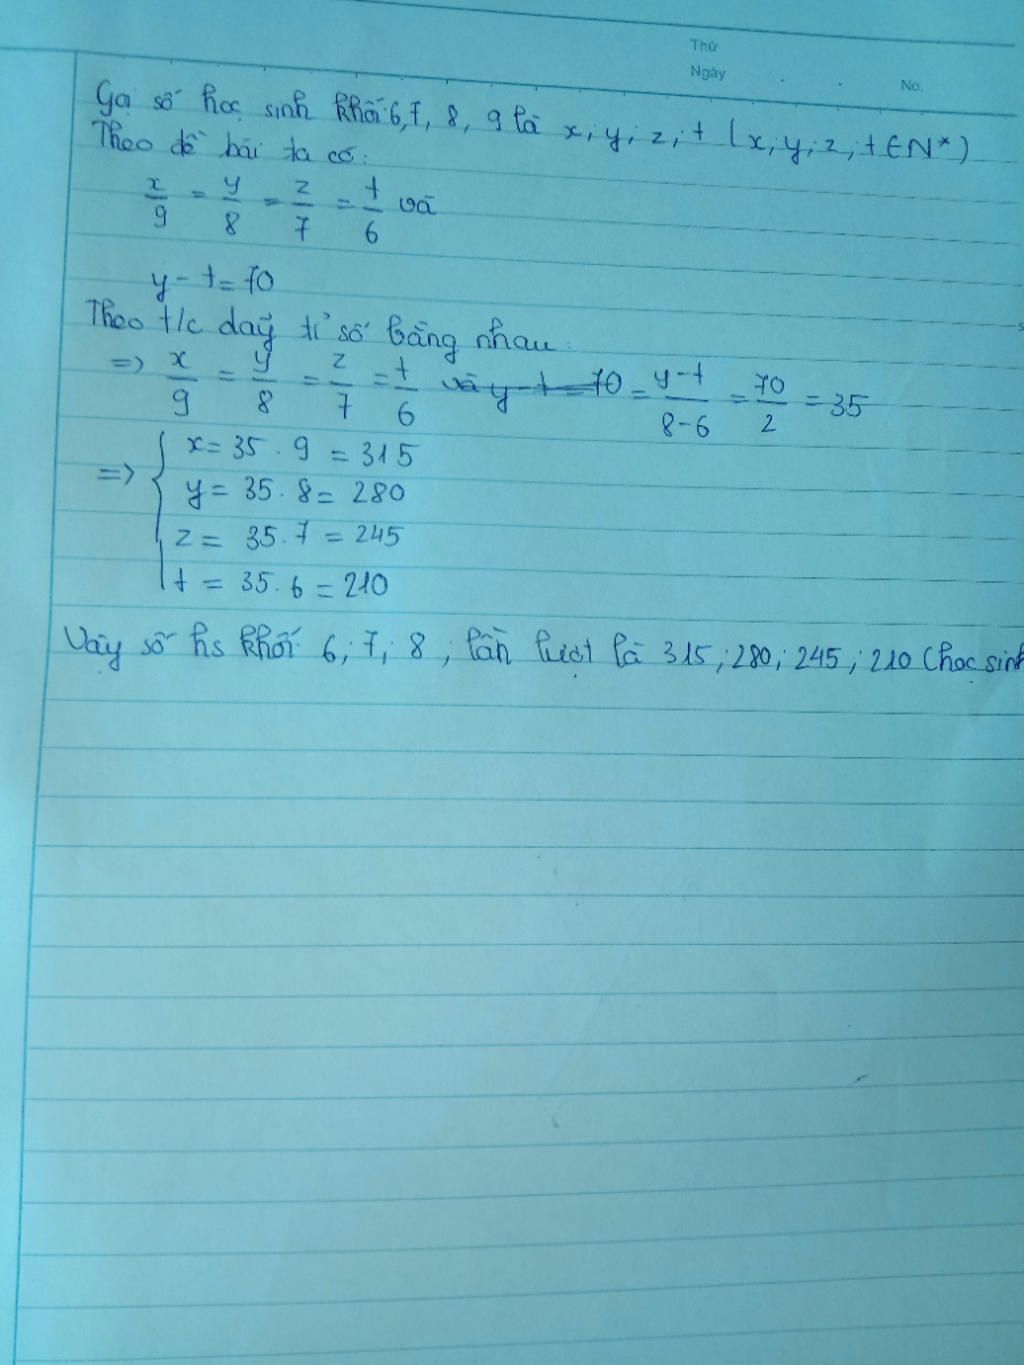 Thứ
Ngày
No.
Gọi số học sinh khối 6, 7, 8, 9 là x; y; z; t (x; y; z; t ∈ N*)
Theo đề bài ta có:
x/9 = y/8 = z/7 = t/6 và
y - t = 70
Theo t/c dãy tỉ số bằng nhau:
=> x/9 = y/8 = z/7 = t/6 và y - t = 70 = y-t/8-6 = 70/2 = 35
=> { x = 35 . 9 = 315
y = 35 . 8 = 280
z = 35 . 7 = 245
t = 35 . 6 = 210
Vậy số hs khối 6; 7; 8; lần lượt là 315; 280; 245; 210 (học sinh